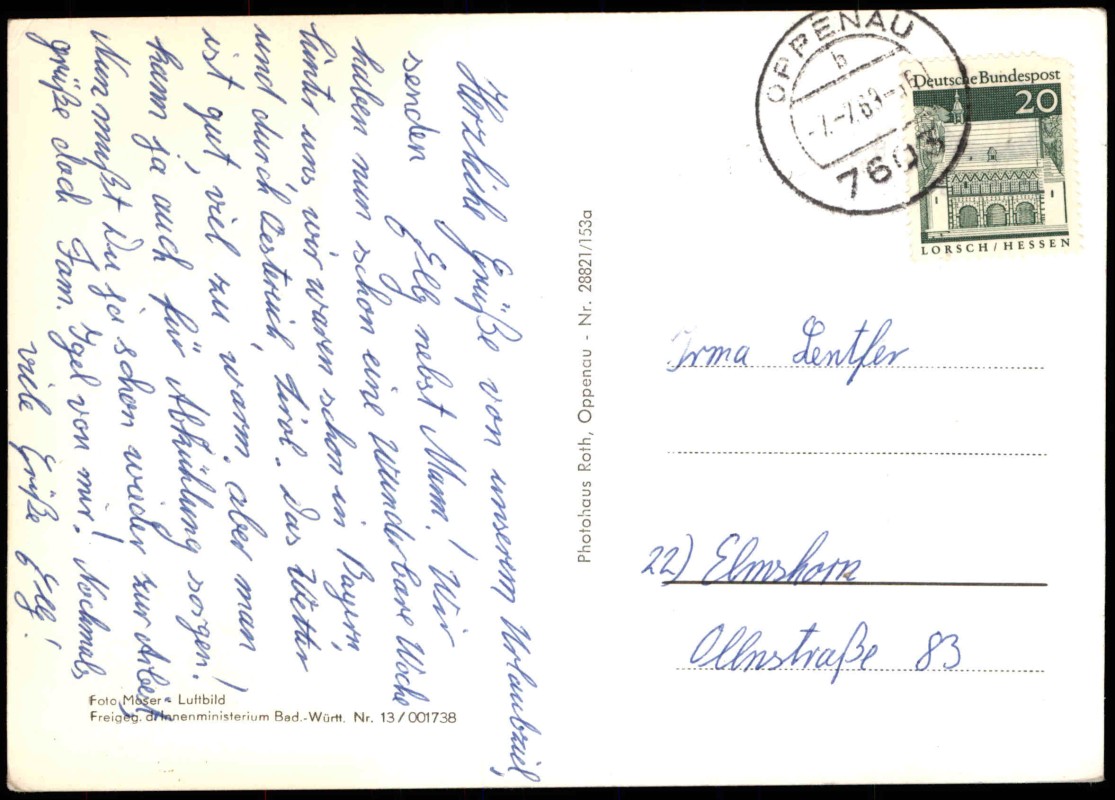 Herzliche Grüße von unserem Urlaubziel,
senden Elly nebst Mann! Wir
haben nun schon eine Wunderbare Woche
hinter uns, wir waren schon in Bayern,
und durch Oesterich, Tirol. Das Wetter
ist gut, viel zu warm, aber man
kann ja auch für Abkühlung sorgen!
Nun mußt Du ja schon wieder zur Arbeit,
grüße doch Fam. Igel von mir! Nochmals
viele Grüße Elly!
Foto Moser - Luftbild
Freigeg. d. Innenministerium Bad.-Württ. Nr. 13/001738
Photohaus Roth, Oppenau - Nr. 28821/153a
OPPENAU
b
-7.-7.69
7603
Deutsche Bundespost
20
LORSCH/HESSEN
Irma Lentfer
22) Elmshorn
Ollnstraße 83